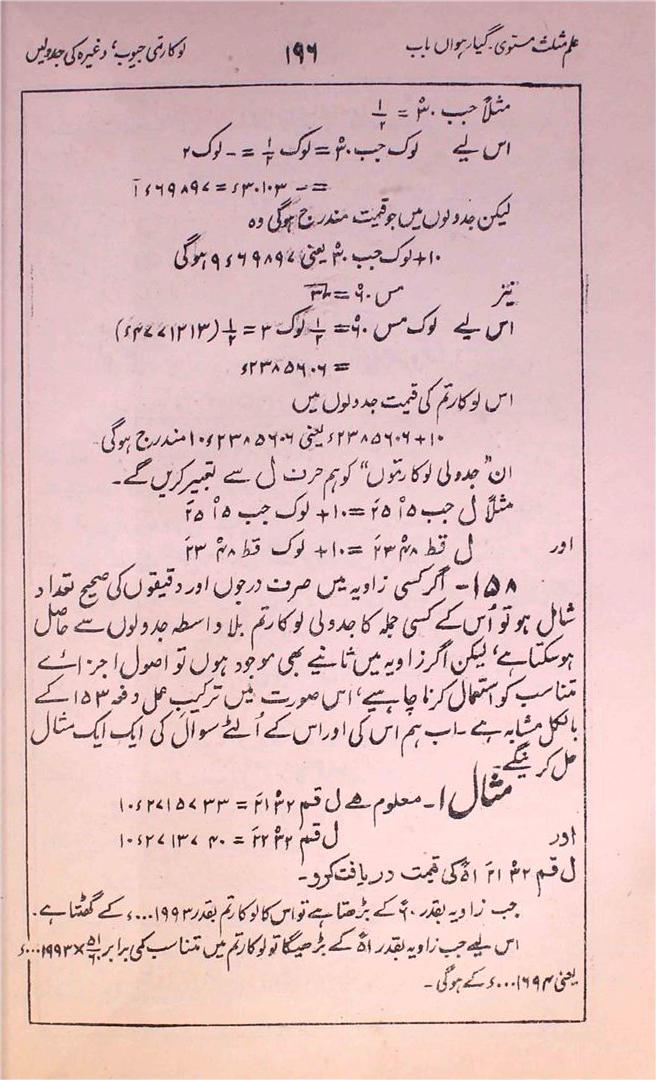 علم مثلث مستوی۔ گیارہواں باب ۱۹۶ لوکارتمی جیوب، وغیرہ کی جدولیں
مثلاً جب ۳۰° = ۱/۲
اس لیے لوک جب ۳۰° = لوک ۱/۲ = - لوک ۲
= - ۳۰۱۰۳ء = ۶۹۸۹۷ءآ
لیکن جدولوں میں جو قیمت مندرج ہوگی وہ
۱۰ + لوک جب ۳۰° یعنی ۶۹۸۹۷ء۹ ہوگی
نیز مس ۶۰° = √۳
اس لیے لوک مس ۶۰° = ۱/۲ لوک ۳ = ۱/۲ (۴۷۷۱۲۱۳ء)
= ۲۳۸۵۶۰۶ء
اس لوکارتم کی قیمت جدولوں میں
۱۰ + ۲۳۸۵۶۰۶ء یعنی ۲۳۸۵۶۰۶ء۱۰ مندرج ہوگی
ان ”جدولی لوکارتموں“ کو ہم حرف ل سے تعبیر کریں گے۔
مثلاً ل جب ۱۵° ۲۵َ = ۱۰ + لوک جب ۱۵° ۲۵َ
اور ل قط ۴۸° ۲۳َ = ۱۰ + لوک قط ۴۸° ۲۳َ
۱۵۸۔ اگر کسی زاویہ میں صرف درجوں اور دقیقوں کی صحیح تعداد
شامل ہو تو اُس کے کسی جملہ کا جدولی لوکارتم بلا واسطہ جدولوں سے حاصل
ہوسکتا ہے، لیکن اگر زاویہ میں ثانیے بھی موجود ہوں تو اصول اجزائے
متناسب کو استعمال کرنا چاہیے، اس صورت میں ترکیب عمل دفعہ ۱۵۳ کے
بالکل مشابہ ہے۔ اب ہم اس کی اور اس کے اُلٹے سوال کی ایک ایک مثال
حل کرینگے۔
مثال ۱۔ معلوم ہے ل قم ۳۲° ۲۱َ = ۲۷۱۵۷۳۳ء۱۰
اور ل قم ۳۲° ۲۲َ = ۲۷۱۳۷۴۰ء۱۰
ل قم ۳۲° ۲۱َ ۵۱ً کی قیمت دریافت کرو۔
جب زاویہ بقدر ۶۰ً کے بڑھتا ہے تو اس کا لوکارتم بقدر ۰۰۰۱۹۹۳ء کے گھٹتا ہے۔
اس لیے جب زاویہ بقدر ۵۱ً کے بڑھیگا تو لوکارتم میں متناسب کمی برابر ۵۱/۶۰ × ۰۰۰۱۹۹۳ء
یعنی ۰۰۰۱۶۹۴ء کے ہوگی۔